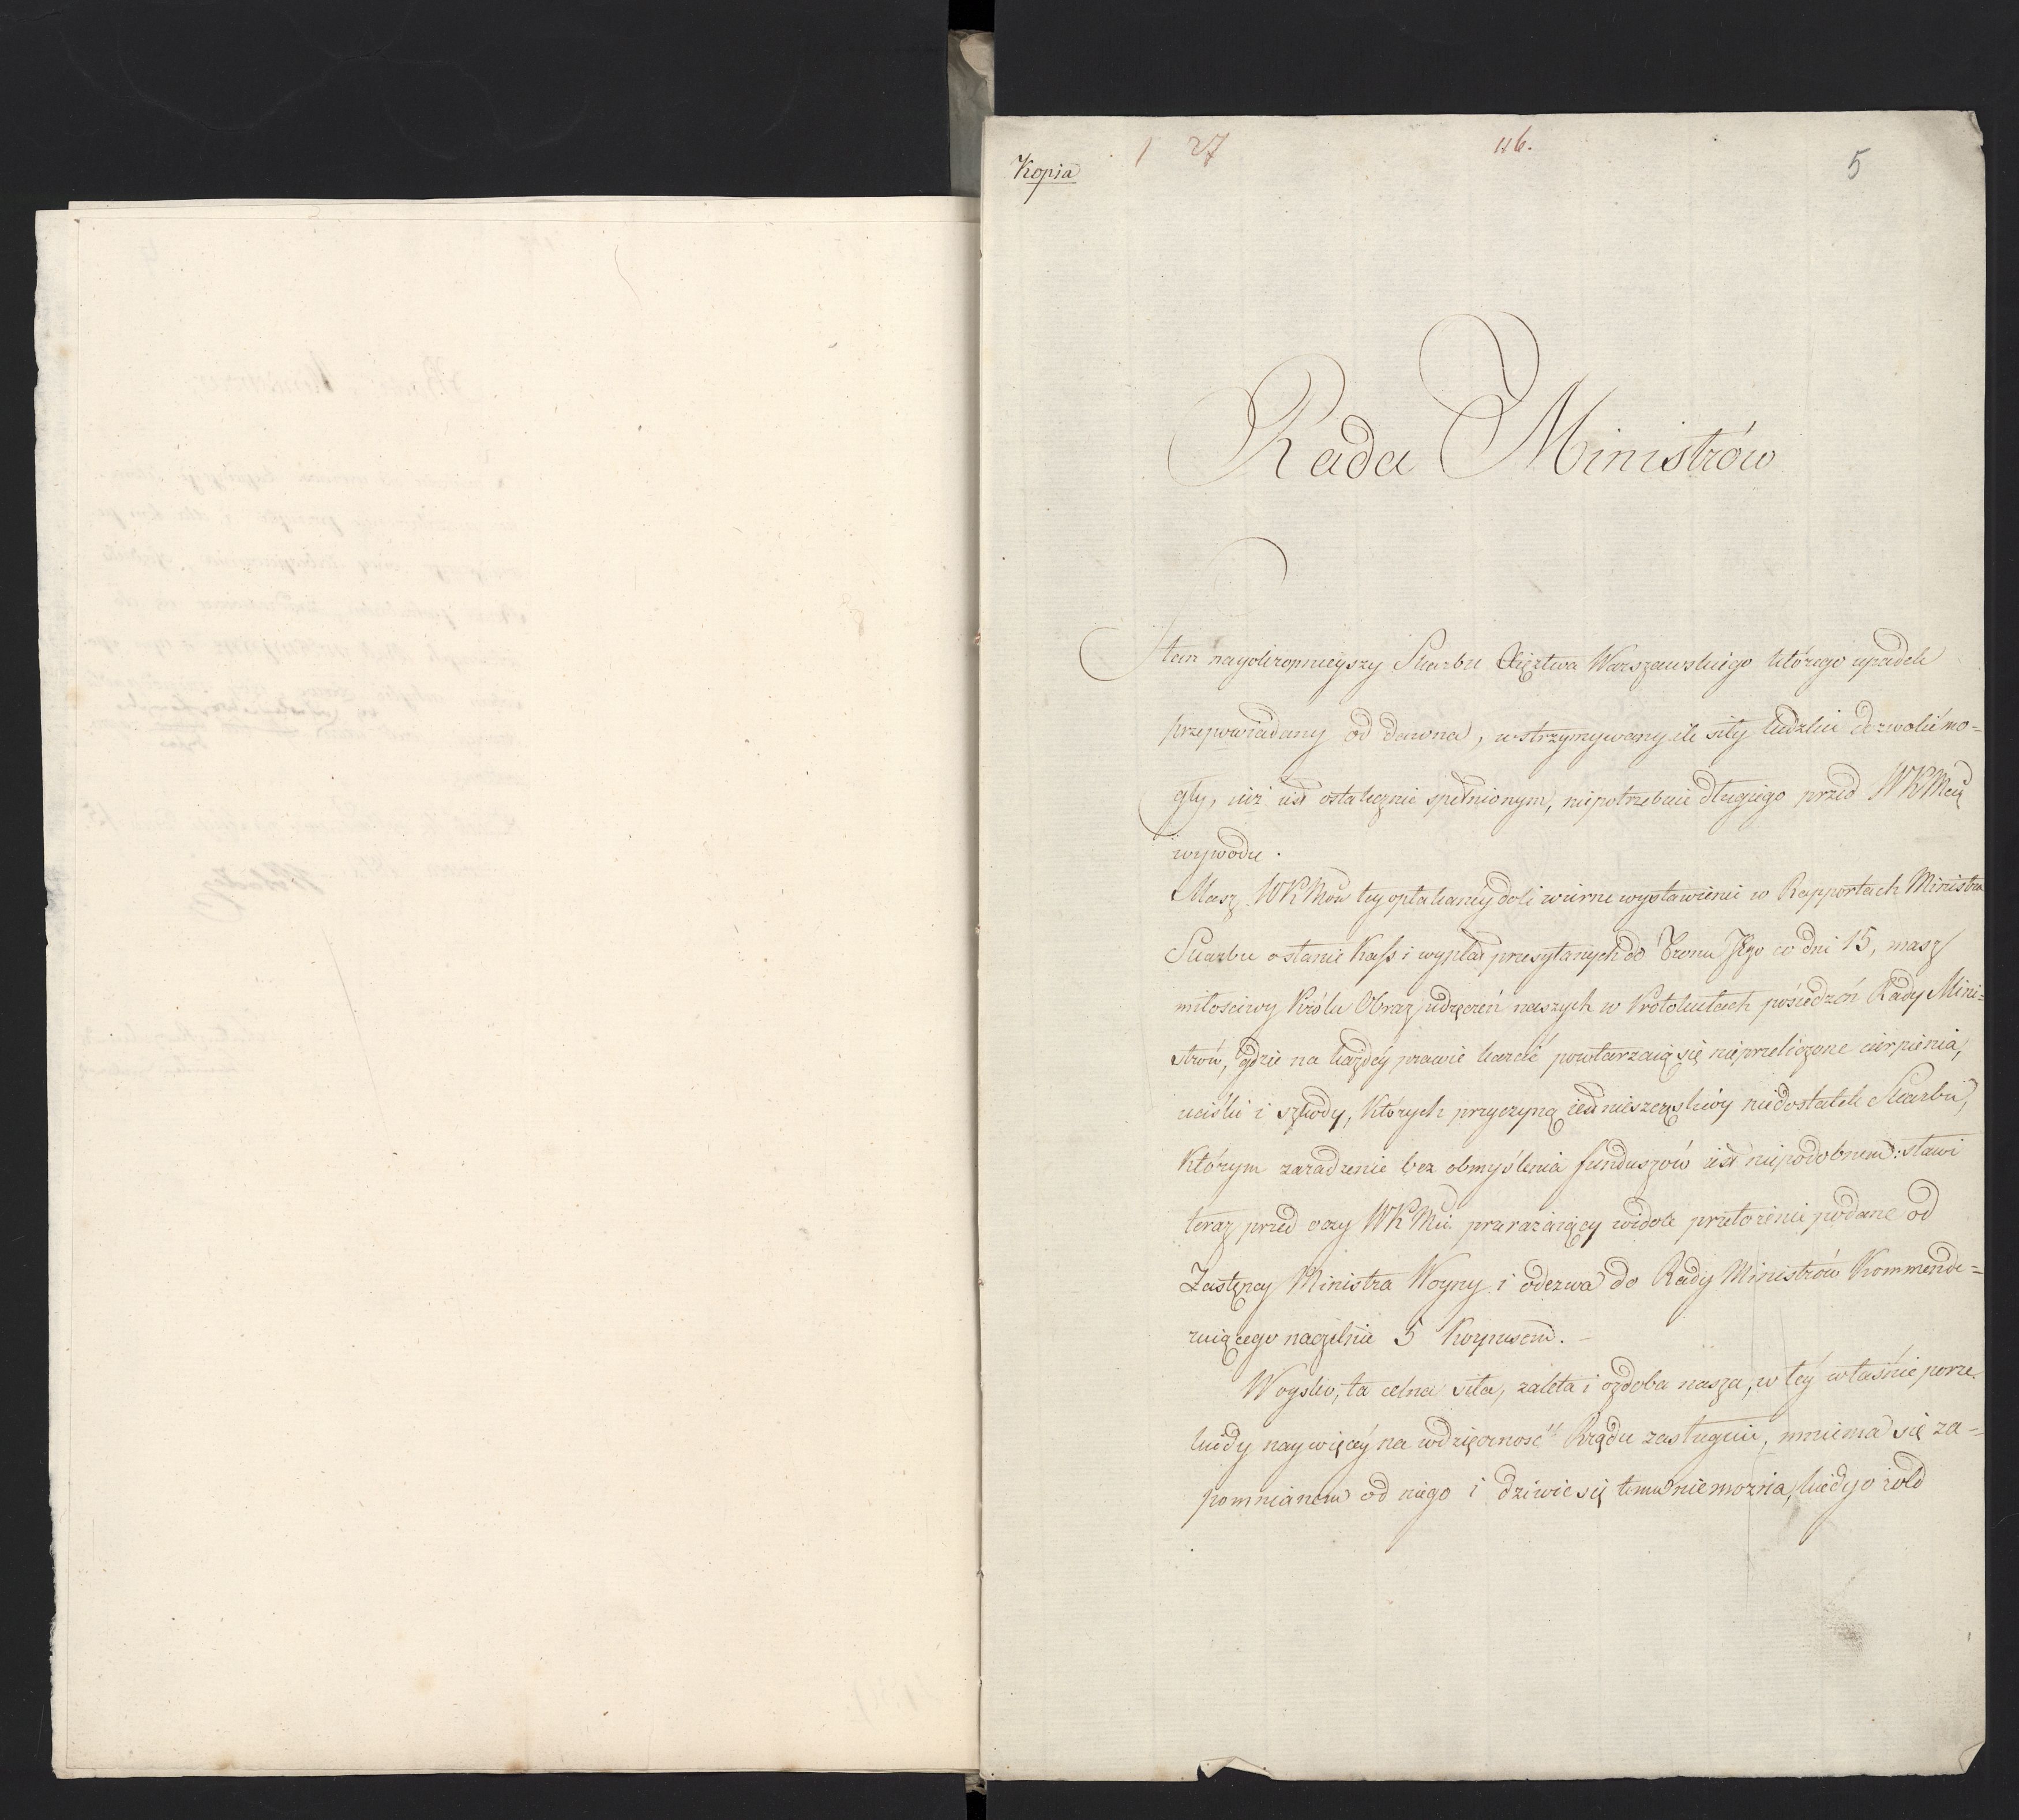 Kopia
1 27 116. 5
Rada Ministrów
Stan nayokropnieyszy Skarbu Xięztwa Warszawskiego którego upadek
przepowiadany od dawna, wstrzymywany ile siły ludzkie dozwolić mo=
gły, iuż iest ostatecznie spełnionym, niepotrzebuie długiego przed WKMcią
wywodu.
Masz WKMość tey opłakanéy doli wierne wystawienie w Rapportach Ministra
Skarbu o stanie Kass i wypłat przesyłanych do Tronu Jego co dni 15, masz
miłościwy Królu Obraz udręczeń naszych w Protokułach posiedzeń Rady Mini=
strów, gdzie na każdéy prawie karcie powtarzaią się nieprzeliczone cierpienia,
uciski i szkody, których przyczyną iest nieszczęśliwy niedostatek Skarbu,
którym zaradzenie bez obmyślenia funduszów iest niepodobnem: stawi
teraz przed oczy WKMci przerażaiący widok przełożenie podane od
Zastępcy Ministra Woyny i odezwa do Rady Ministrów Kommende=
ruiącego naczelnie 5 Korpusem.
Woysko, ta celna siła, zaleta i ozdoba nasza, w téy właśnie porze
kiedy naywięcéy na wdzięczność Rządu zasługuie, mniema się za=
pomnianem od niego i dziwić się temu niemożna, kiedy o żołd